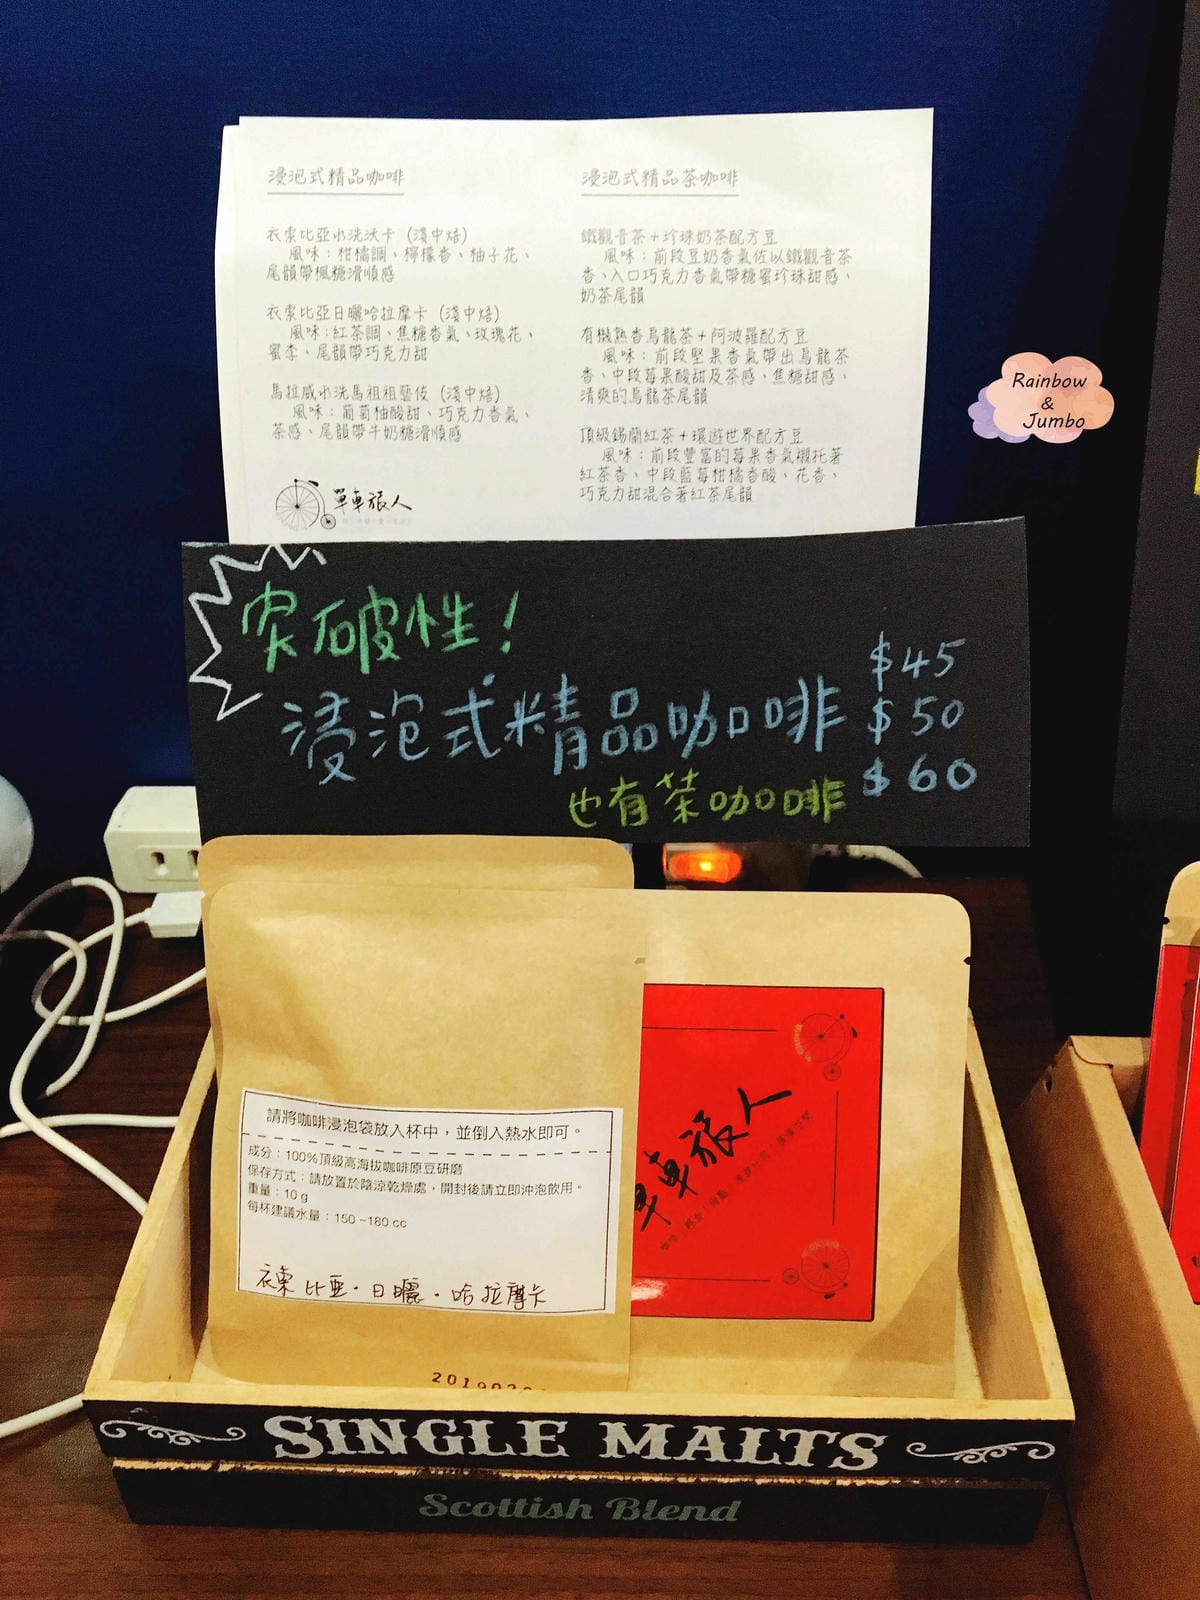 浸泡式精品咖啡
衣索比亞水洗沃卡 (淺中焙)
風味：柑橘調、檸檬香、柚子花、
尾韻帶楓糖滑順感
衣索比亞日曬哈拉摩卡 (淺中焙)
風味：紅茶調、焦糖香氣、玫瑰花、
蜜李、尾韻帶巧克力甜
馬拉威水洗馬祖祖藝伎 (淺中焙)
風味：葡萄柚酸甜、巧克力香氣、
茶感、尾韻帶牛奶糖滑順感
單車旅人
浸泡式精品茶咖啡
鐵觀音茶+珍珠奶茶配方豆
風味：前段豆奶香氣佐以鐵觀音茶
香、入口巧克力香氣帶糖蜜珍珠甜感、
奶茶尾韻
有機熟香烏龍茶+阿波羅配方豆
風味：前段堅果香氣帶出烏龍茶
香、中段莓果酸甜及茶感、焦糖甜感、
清爽的烏龍茶尾韻
頂級錫蘭紅茶+環遊世界配方豆
風味：前段豐富的莓果香氣襯托著
紅茶香、中段藍莓柑橘香酸、花香、
巧克力甜混合著紅茶尾韻
Rainbow
&
Jumbo
突破性!
浸泡式精品咖啡
也有茶咖啡
$45
$50
$60
請將咖啡浸泡袋放入杯中，並倒入熱水即可。
成分：100%頂級高海拔咖啡原豆研磨
保存方式：請放置於陰涼乾燥處，開封後請立即沖泡飲用。
重量：10 g
每杯建議水量：150 ~180 cc
衣索比亞·日曬·哈拉摩卡
單車旅人
SINGLE MALTS
Scottish Blend